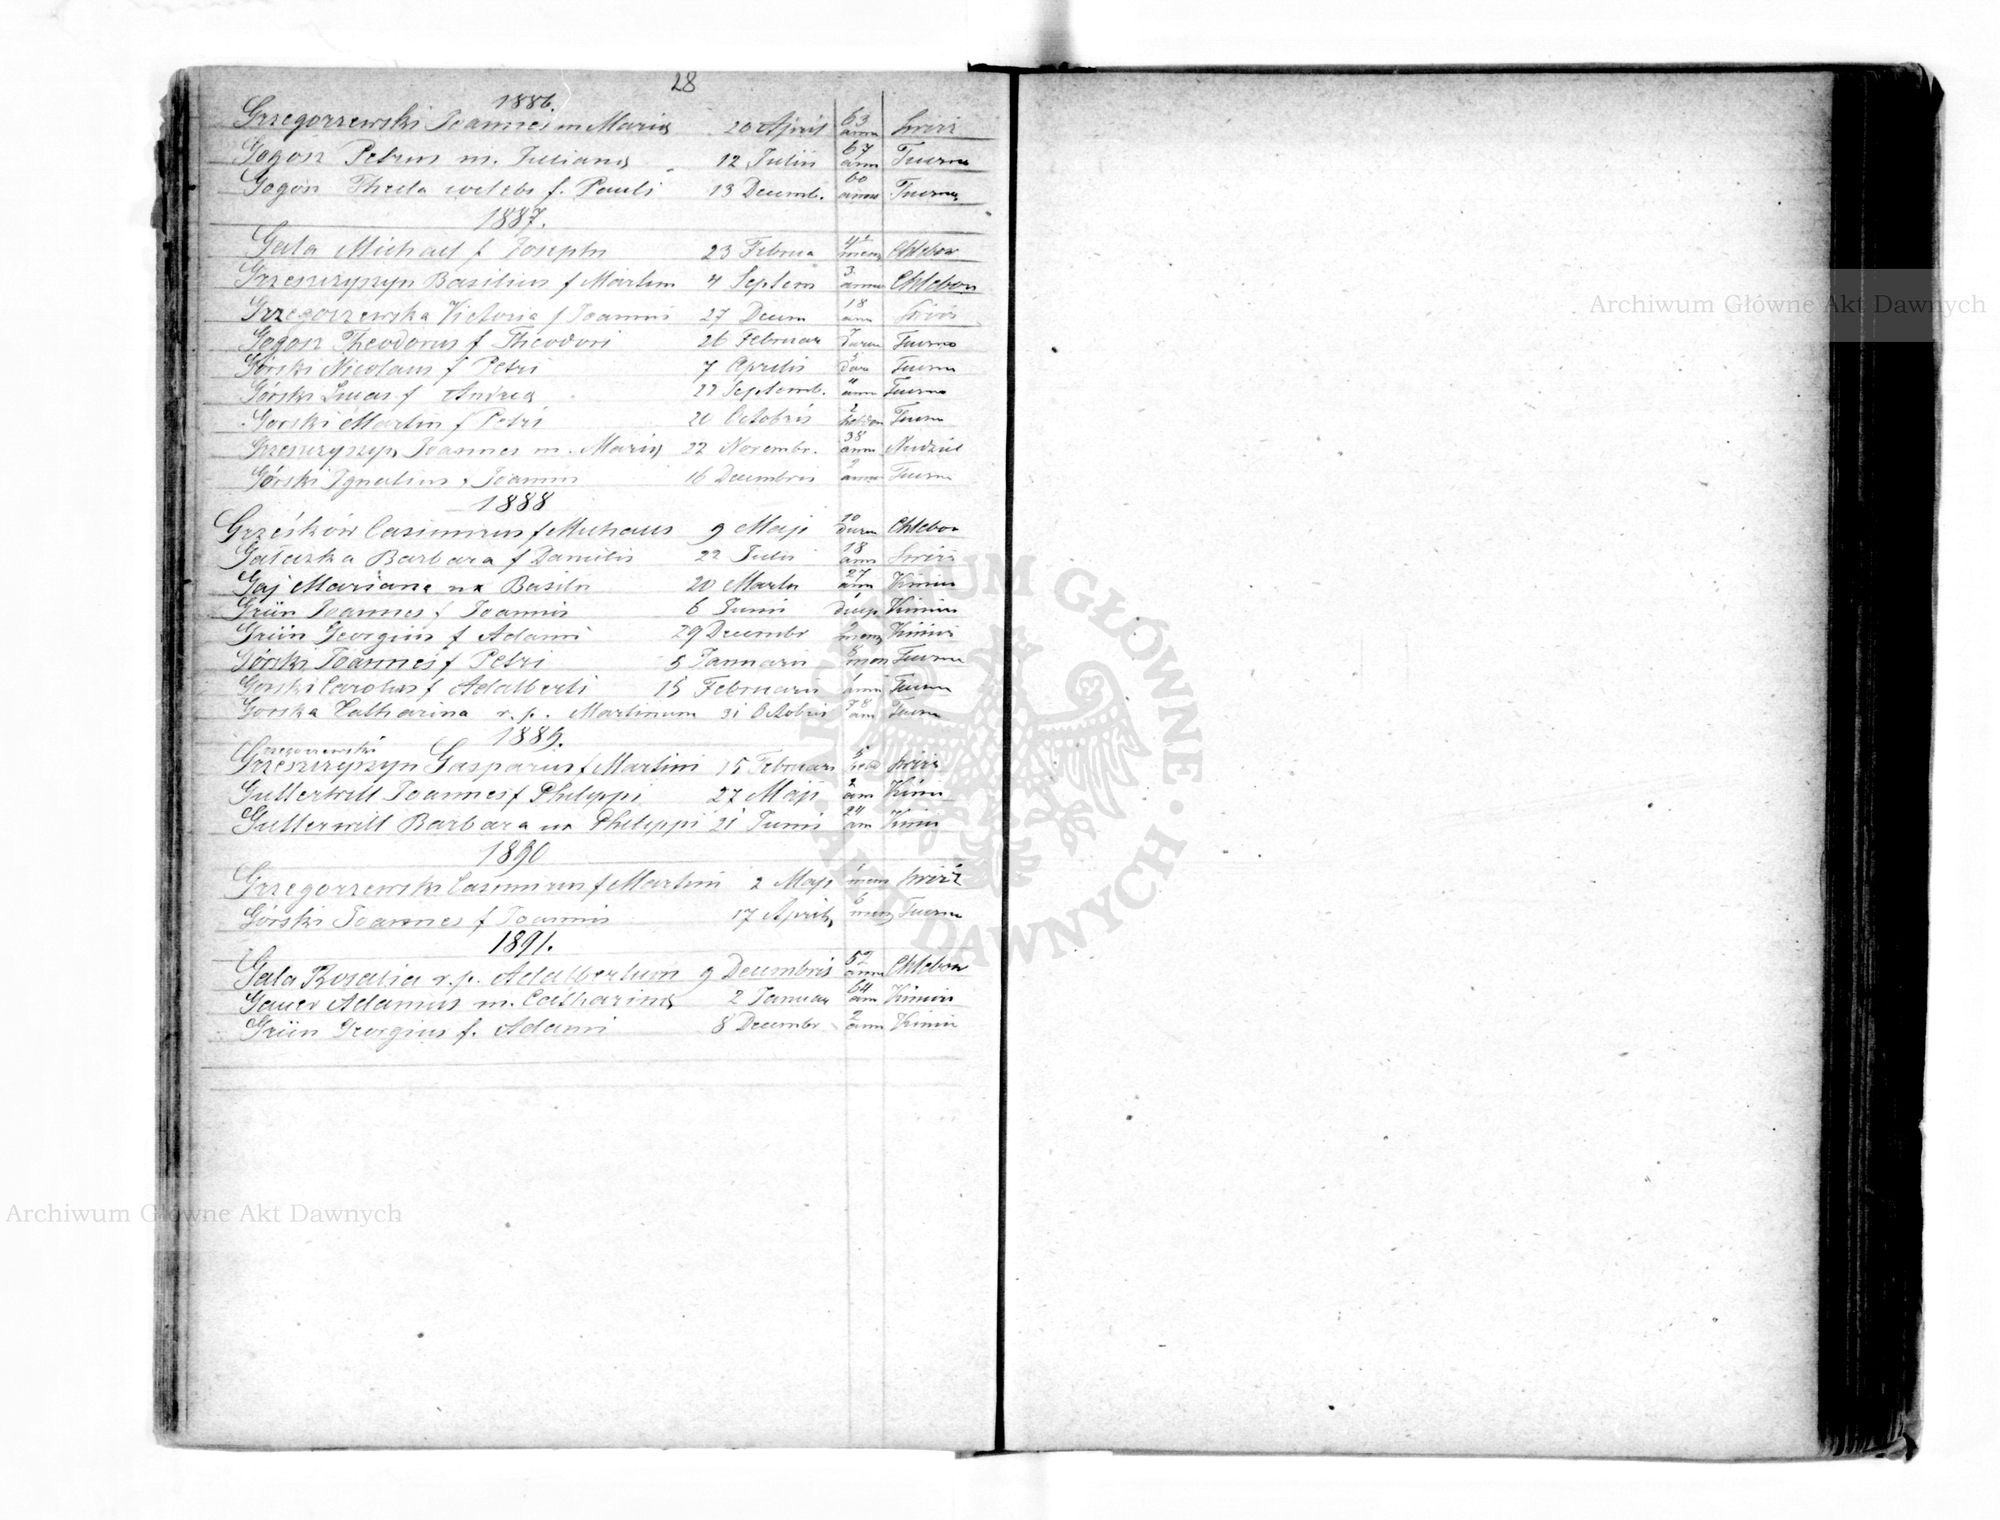 28
1886.
Grzegorzewski Joannes m Maria 20 April 63 ann Swirz
Gogon Petrus m. Juliana 12 Julii 67 ann Tuczna
Gogon Thecla coelebs f. Pauli 13 Decemb. 60 annor Tuczna
1887.
Gala Michael f Josephi 23 Februa mens Chlebow
Grzeszczyszyn Basilius f Martini 4 Septem 3 anno Chlebow
Grzegorzewska Victoria f Joannis 27 Decem 18 ann Swirz
Gogon Theodorus f Theodori 26 Februar Tuczna
Górski Nicolaus f Petri 7 Aprilis Tuczna
Górski Lucas f Andrea 22 Septemb. ann Tuczna
Gorski Martin f Petri 20 Octobris 2 Tuczna
Grzeszczyszyn Joannes m. Maria 22 Novembr. 38 ann
Górski Ignatius Joannis 16 Decembris 2 anno Tuczna
1888
Grześków Casimirus f Michaelis 9 Maji 10 Chlebow
Galaszka Barbara f Danielis 22 Julii 18 ann Swirz
Gaj Mariana ux Basilii 20 Martii 27 ann Kimir
Grün Joannes f Joannis 6 Junii Kimir
Grün Georgius f Adami 29 Decembr mens Kimir
Górski Joannes f Petri 5 Januarii 5 men Tuczna
Gorski Carolus f Adalberti 15 Februarii 1 anni Tuczna
Gorska Catharina r. p. Martinum 31 Octobris 78 ann Tuczna
1889.
Grzegorzewski
Grzeszczyszyn Gasparus f Martini 15 Februari Swirz
Gutterwill Joannes f Philippi 27 Maji 2 ann Kimir
Gutterwill Barbara ux Philippi 21 Junii 24 ann Kimir
1890
Grzegorzewski Casimirus f Martini 2 Maji 1 mens Swirz
Górski Joannes f Joannis 17 Aprilis 6 mens Tuczna
1891.
Gala Rosalia r. p. Adalbertum 9 Decembris 52 anno Chlebow
Gauer Adamus m. Catharina 2 Januar 64 ann Kimir
Grün Georgius f. Adami 8 Decembr 2 ann Kimir
Archiwum Główne Akt Dawnych
Archiwum Główne Akt Dawnych
ARCHIWUM GŁÓWNE · AKT DAWNYCH ·